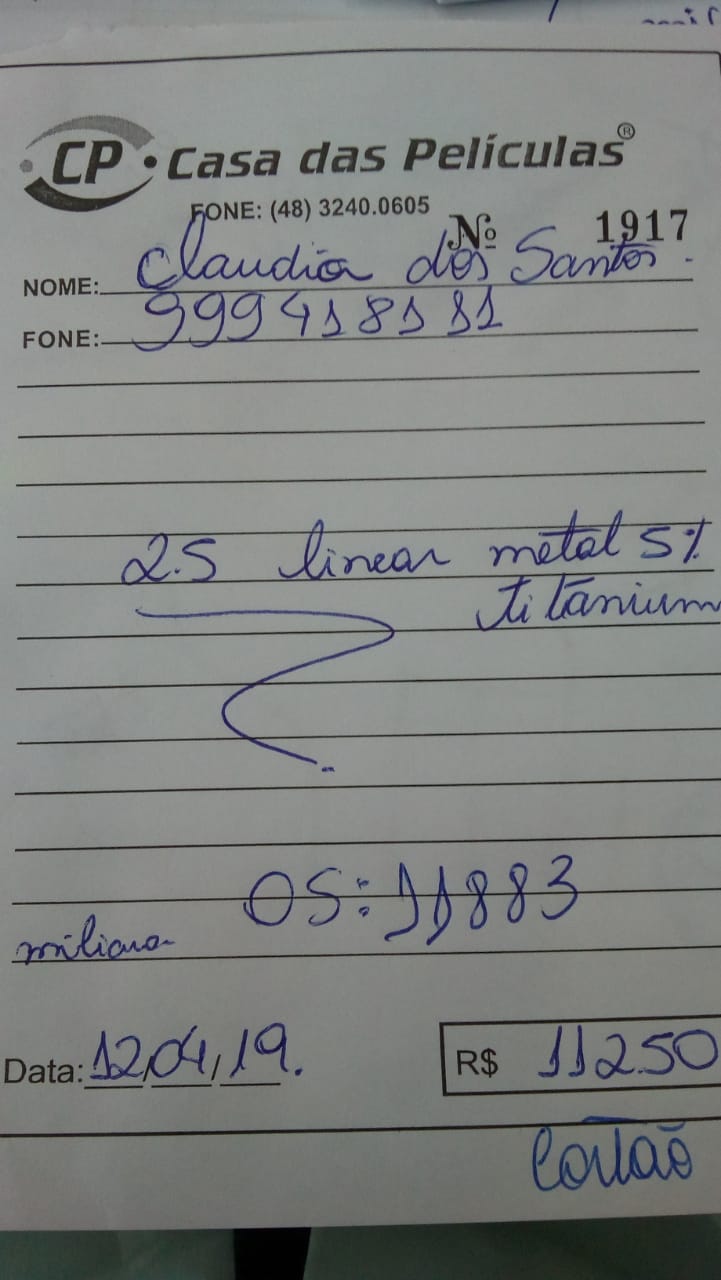 CP Casa das Películas®
FONE: (48) 3240.0605
Nº 1917
NOME: Claudia dos Santos.
FONE: 999418181
2.5 linear metal 5%
titanium
OS: 11883
Data: 12,04,19.
R$ 112.50
Cartão